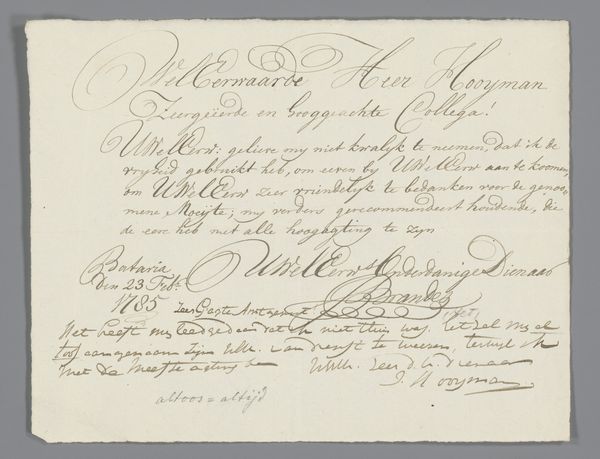 WelEerwaarde Heer Hooyman
Zeergeëerde en hooggeachte Collega!
UWelEerw: gelieve my niet kwalijk te neemen, dat ik de
vryheid gebruikt heb, om even by UWelEerw aan te koomen,
om UWelEerw zeer vriendelijk te bedanken voor de genoo„
mene Moeijte; my verders gerecommandeert houdende, die
de eere heb met alle hoogagting te zyn
Batavia
den 23 Feb:
1785
UWelEerws Onderdanige Dienaar
JBrandes
Het heeft my leed gedaan dat ik niet thuis was, het zal my al
toos aangenaam zijn UEw. van dienst te weesen, terwijl ik
met de meeste agting ben UWEw. zeer d. w. dienaar
J. Hooyman.
altoos = altijd